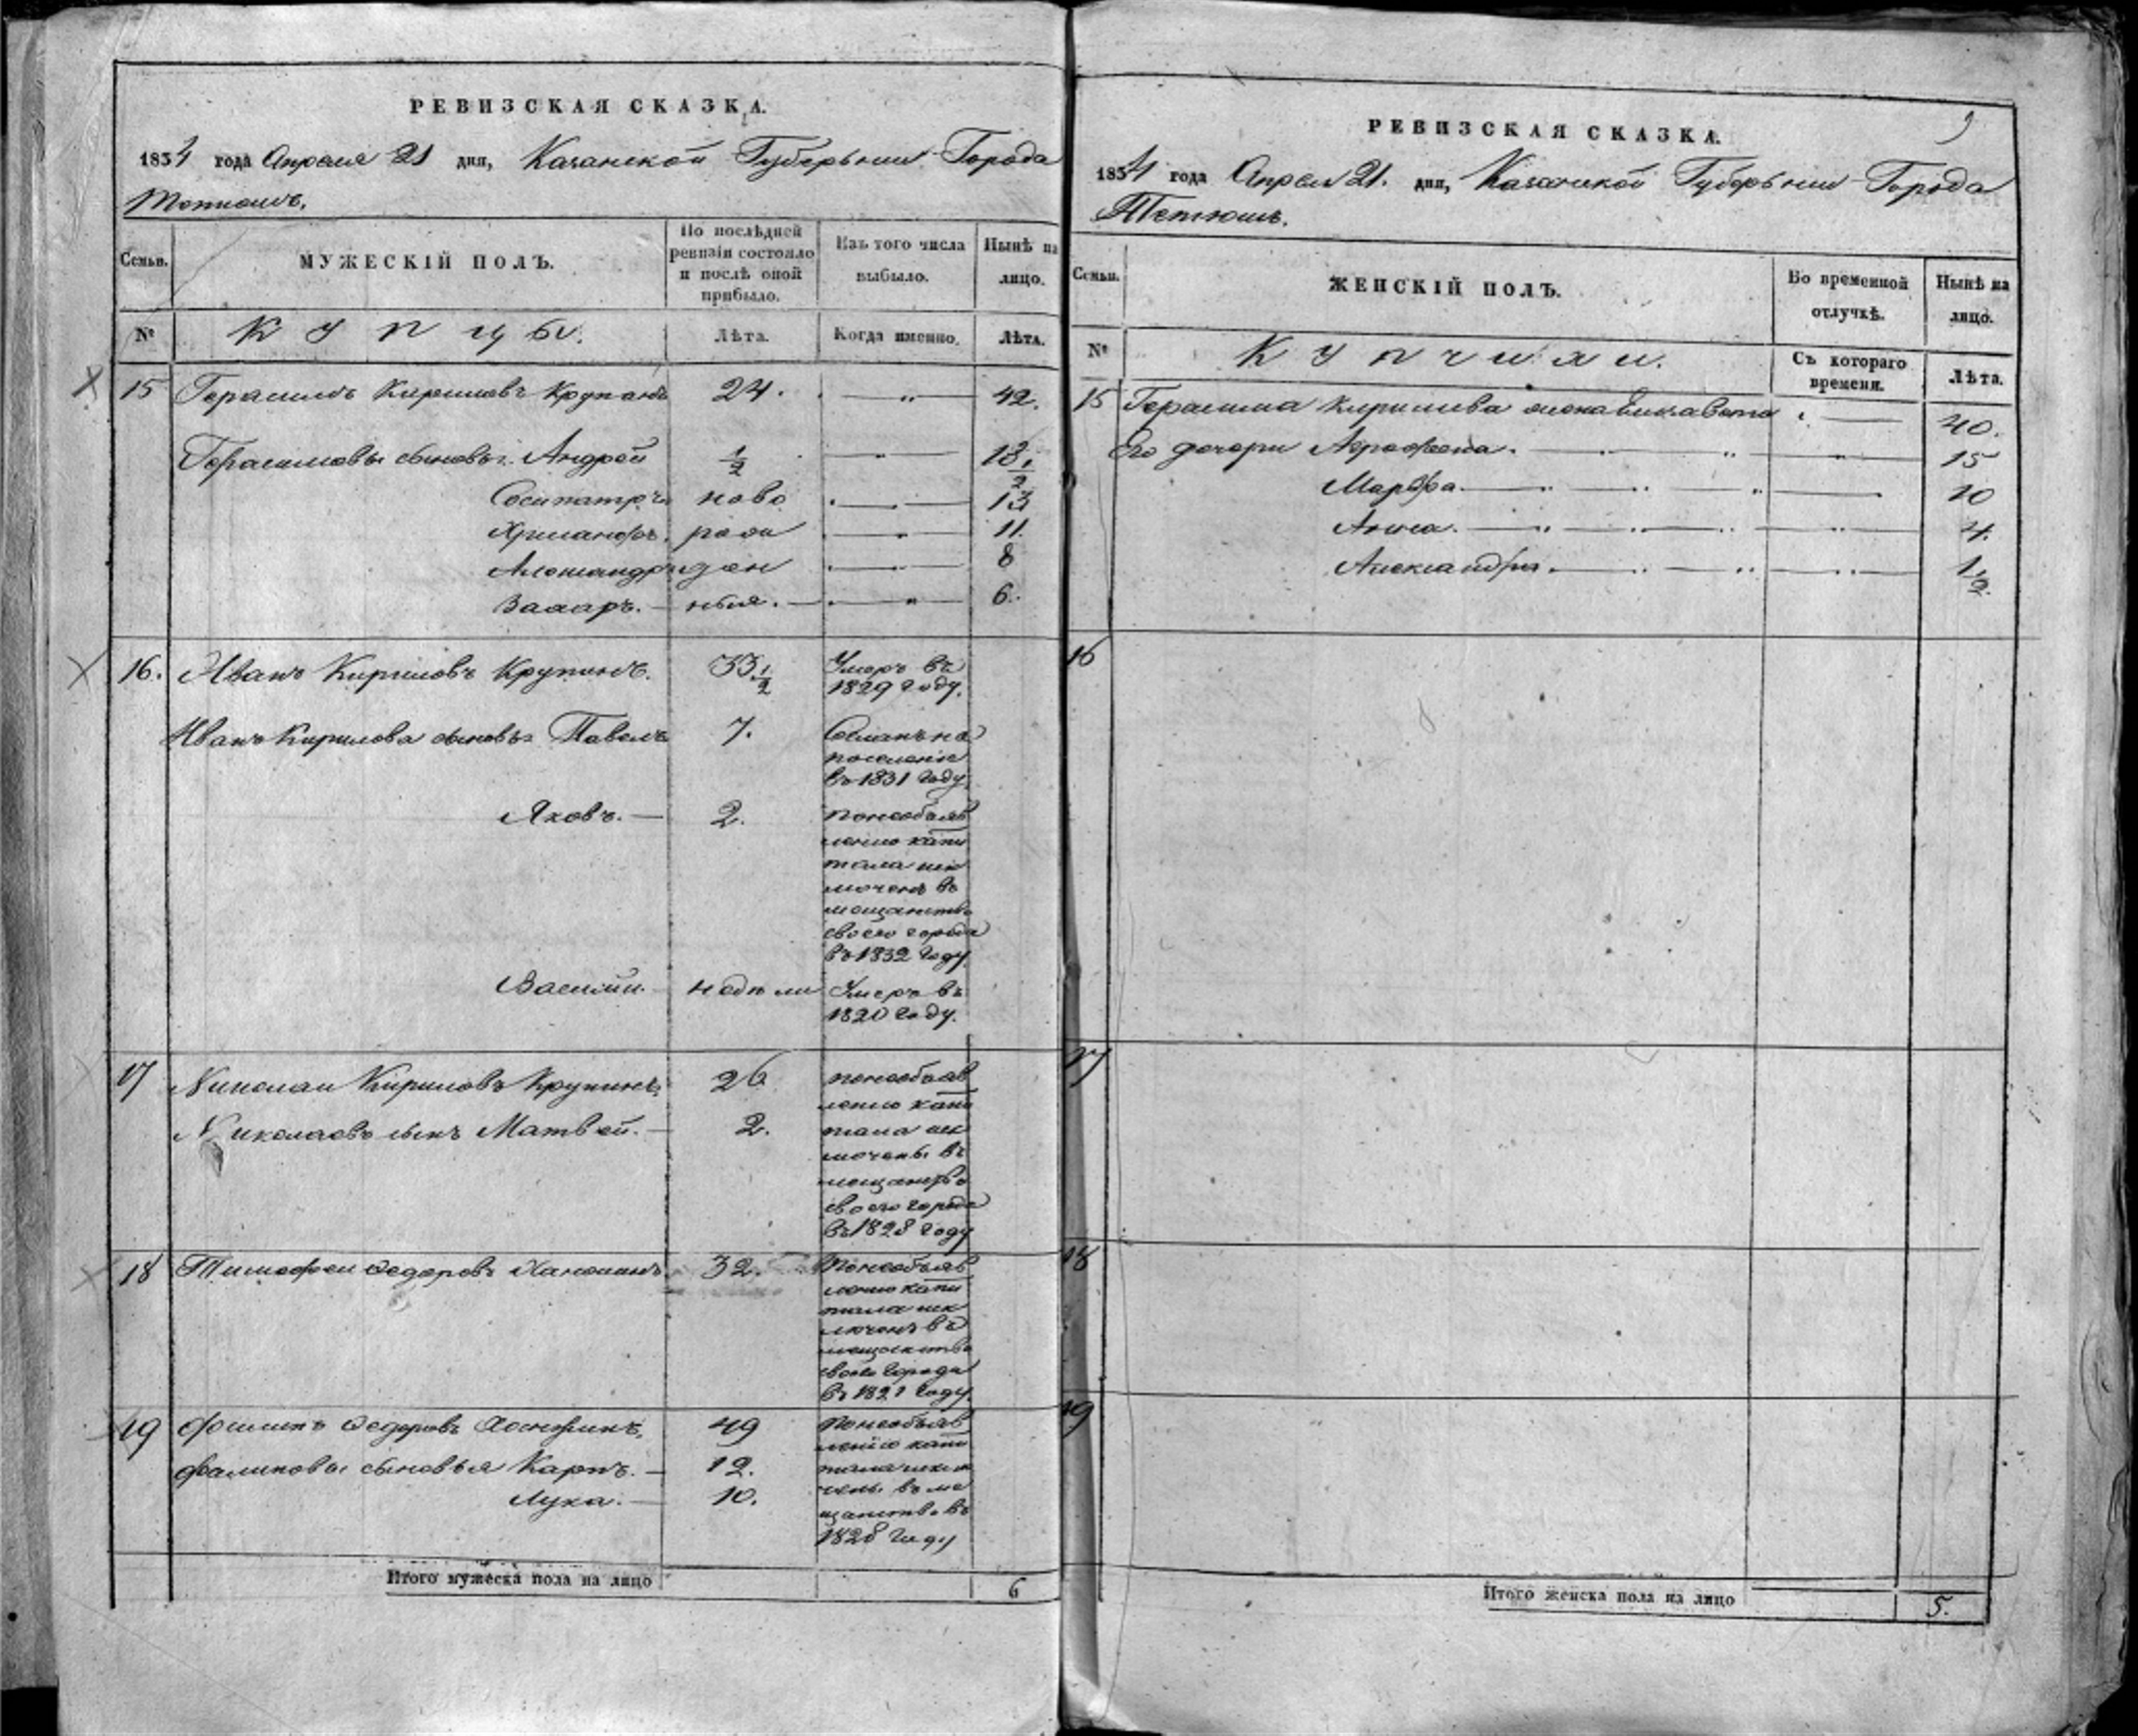 РЕВИЗСКАЯ СКАЗКА.
1834 года Апреля 21 дня, Казанской Губерьнии Города
Тетюшъ.
Семьи.
МУЖЕСКІЙ ПОЛЪ.
По послѣдней ревизіи состояло и послѣ оной прибыло.
Изъ того числа выбыло.
Нынѣ на лицо.
№
Купцы.
Лѣта.
Когда именно.
Лѣта.
15 Герасимъ Кириловъ Крупинъ 24. — „ — 42.
Герасимовы сыновья: Андрей 1/2 — „ — 18 1/2
Сосипатръ ново — „ — 13
Хрисанфъ. рож — „ — 11.
Александръ ден — „ — 8
Захаръ. — ныя. — „ — 6.
16. Иванъ Кириловъ Крупинъ. 33 1/2 Умеръ въ
1829 году.
Иванъ Кирилова сыновья Павелъ 7. Сосланъ на
поселеніе
въ 1831 году.
Яковъ. — 2. по необъяв
лению капи
тала иск
люченъ въ
мещанство
своего города
въ 1832 году.
Василии. — недели Умеръ въ
1820 году.
17 Николаи Кириловъ Крупинъ. 26 по необъяв
лению капи
Николаевъ сынъ Матвей. — 2. тала иск
лючены въ
мещанство
своего города
въ 1828 году
18 Тимофеи Федоровъ 32. По необъяв
лению капи
тала иск
люченъ въ
мещанство
своего города
въ 1821 году.
19 Филипъ Федоровъ 49 По необъяв
лению капи
Филиповы сыновья Карпъ. — 12. тала исклю
Лука. — 10. чены въ ме
щанство въ
1828 году
Итого мужеска пола на лицо 6
9
РЕВИЗСКАЯ СКАЗКА.
1834 года Апреля 21. дня, Казанской Губерьнии Города
Тетюшъ.
Семьи.
ЖЕНСКІЙ ПОЛЪ.
Во временной отлучкѣ.
Нынѣ на лицо.
№
Купчихи.
Съ котораго времени.
Лѣта.
15 Герасима Кирилова жена Елизавета — 40.
Его дочери Агрофена. — „ — 15
Марфа. — „ — 10
Анна. — „ — 4.
Александра. — „ — 1 1/2.
16
17
18
19
Итого женска пола на лицо 5.